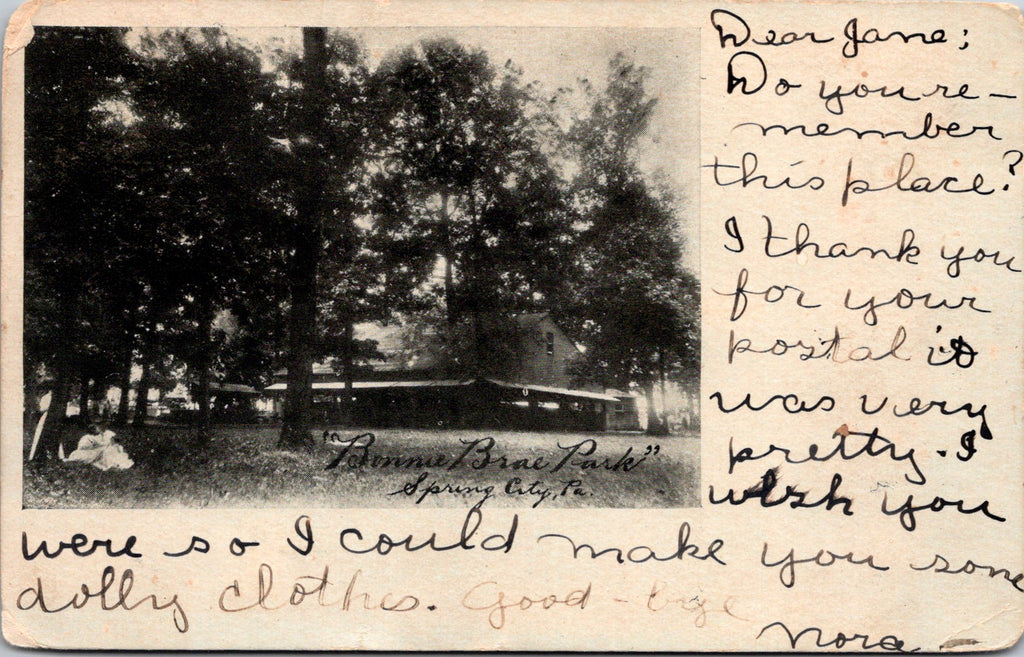 Dear Jane;
Do you re-
member
this place?
I thank you
for your
postal it
was very
pretty. I
wish you
were so I could make you some
dolly clothes. Good-bye
Nora.
"Bonnie Brae Park"
Spring City, Pa.